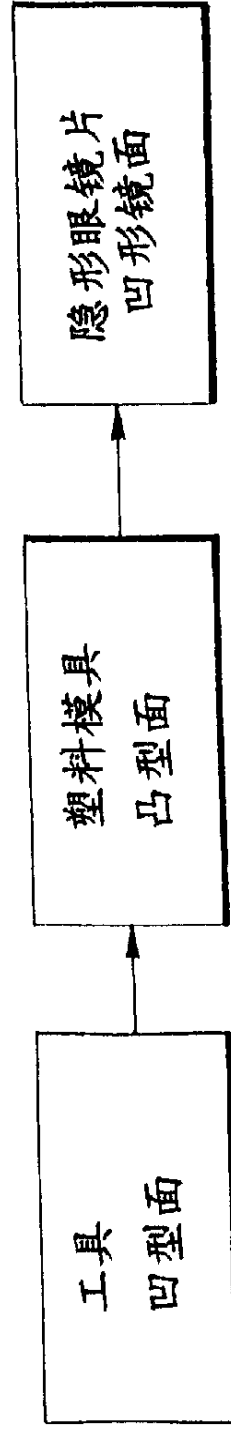 工具
凹型面
塑料模具
凸型面
隐形眼镜片
凹形镜面